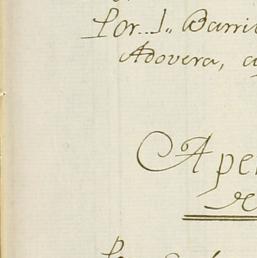 Por..1,, Barri
Adovera, a
Ape
de